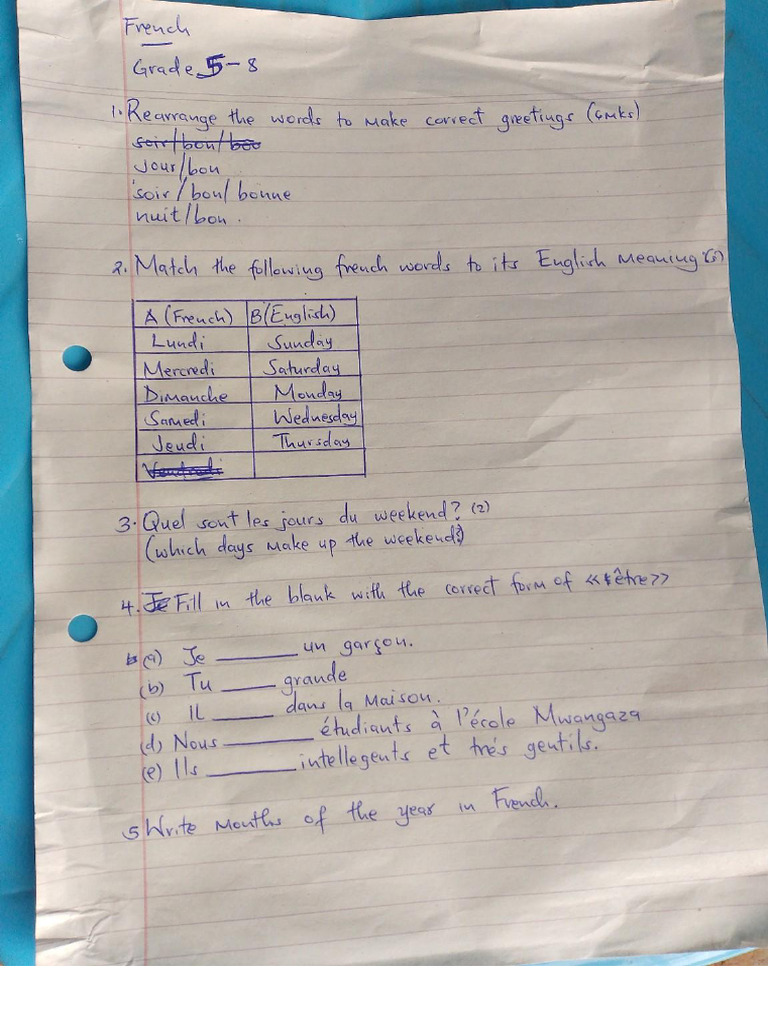 French
Grade 5-8
1. Rearrange the words to make correct greetings (6mks)
soir/bon/boo
jour/bon
soir/bon/bonne
nuit/bon.
2. Match the following french words to its English meaning (5)
A (French) B (English)
Lundi Sunday
Mercredi Saturday
Dimanche Monday
Samedi Wednesday
Jeudi Thursday
Vendredi
3. Quel sont les jours du weekend? (2)
(which days make up the weekend?)
4. Je Fill in the blank with the correct form of <<être>>
(a) Je ________ un garçon.
(b) Tu _____ grande
(c) IL _____ dans la maison.
(d) Nous ________ étudiants à l'école Mwangaza
(e) Ils ________ intellegents et trés gentils.
5 Write months of the year in French.